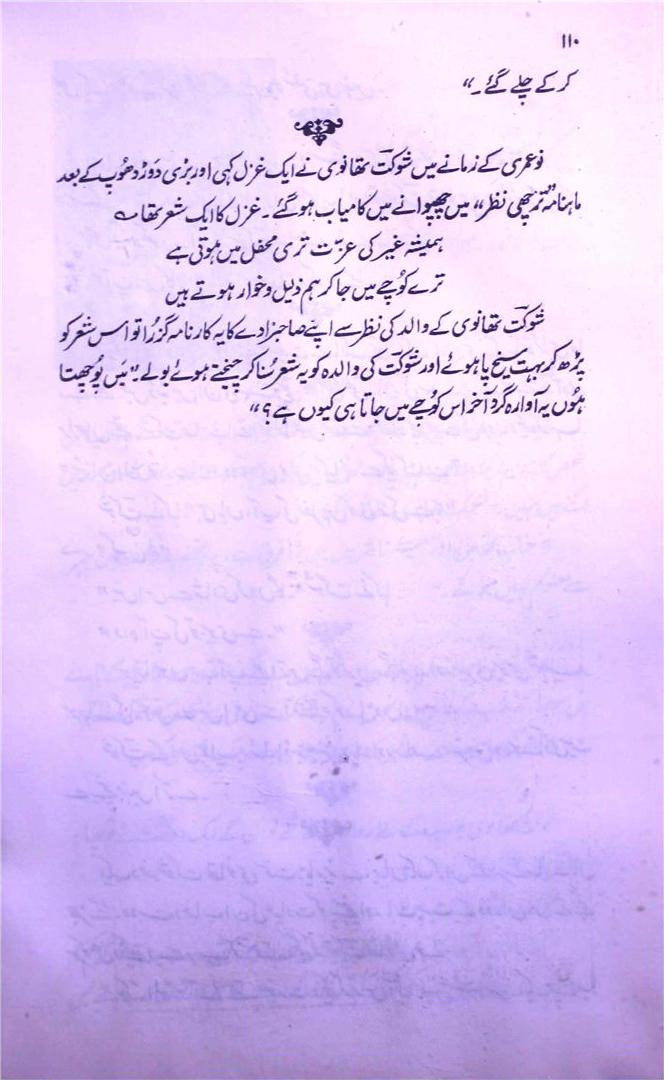 ۱۱۰
کر کے چلے گئے۔"
نو عمری کے زمانے میں شوکت تھانوی نے ایک غزل کہی اور بڑی دَوڑ دھُوپ کے بعد
ماہنامہ "ترچھی نظر" میں چھپوانے میں کامیاب ہو گئے۔ غزل کا ایک شعر تھا ؎
ہمیشہ غیر کی عزّت تری محفل میں ہوتی ہے
ترے کوُچے میں جا کر ہم ذلیل و خوار ہوتے ہیں
شوکت تھانوی کے والد کی نظر سے اپنے صاحبزادے کا یہ کارنامہ گزرا تو اس شعر کو
پڑھ کر بہت سیخ پا ہوئے اور شوکت کی والدہ کو یہ شعر سُنا کر چیختے ہوئے بولے: "میَں پوُچھتا
ہُوں یہ آوارہ گرد آخر اس کوُچے میں جاتا ہی کیوں ہے؟"